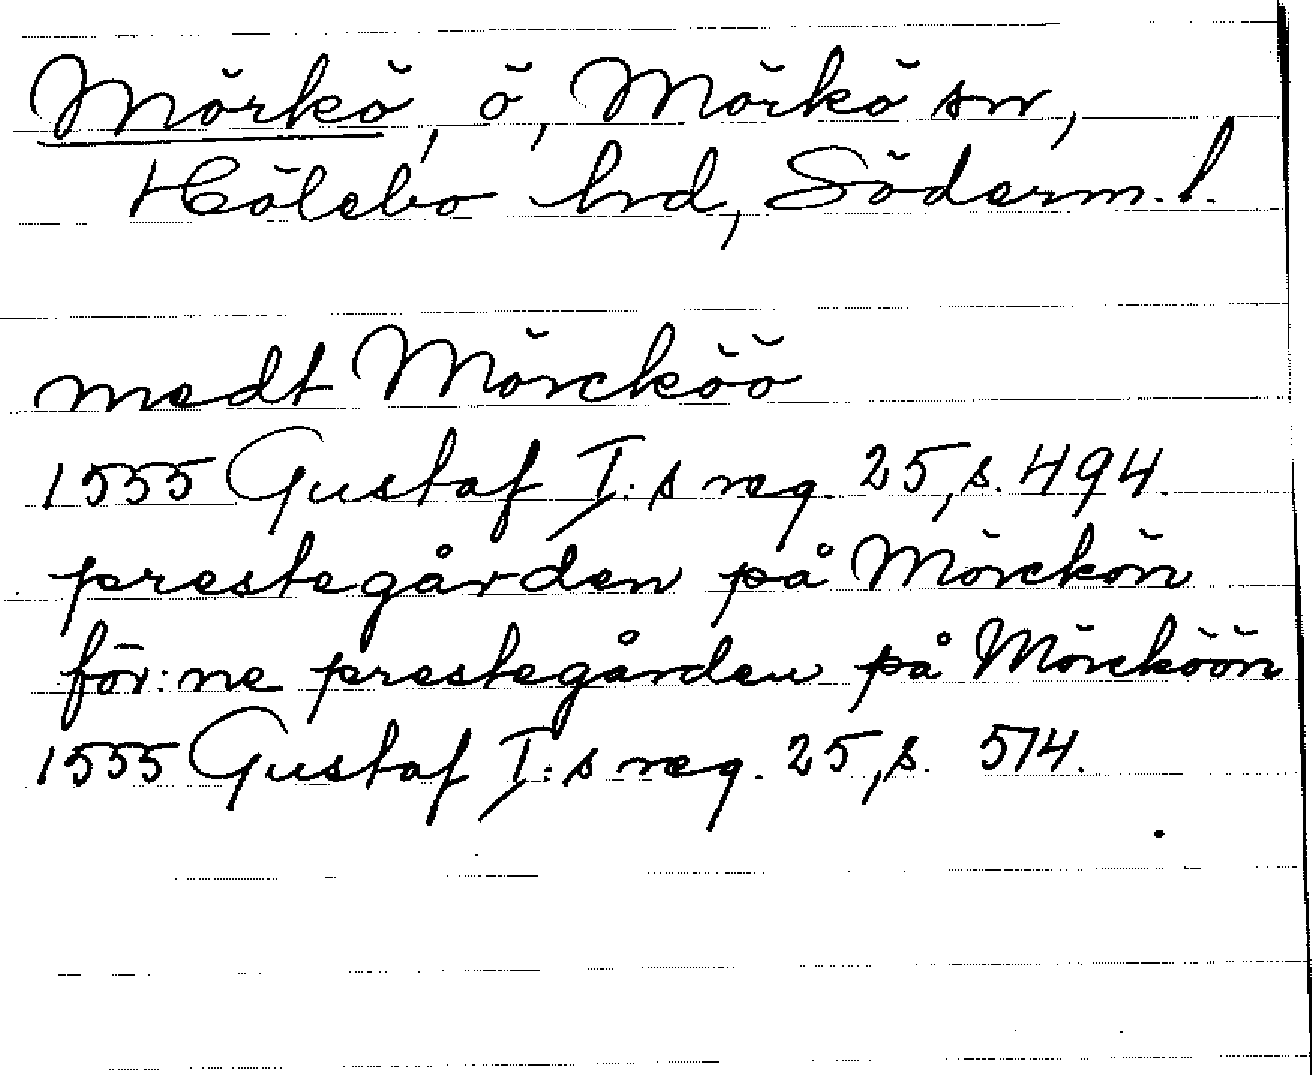 Mörkö, ö, Mörkö sn,
Hölebo hrd, Söderm. l.
medt Mörcköö
1555 Gustaf I:s reg. 25, s. 494.
prestegården på Mörckön
för:ne prestegården på Mörcköön
1555 Gustaf I:s reg. 25, s. 514.